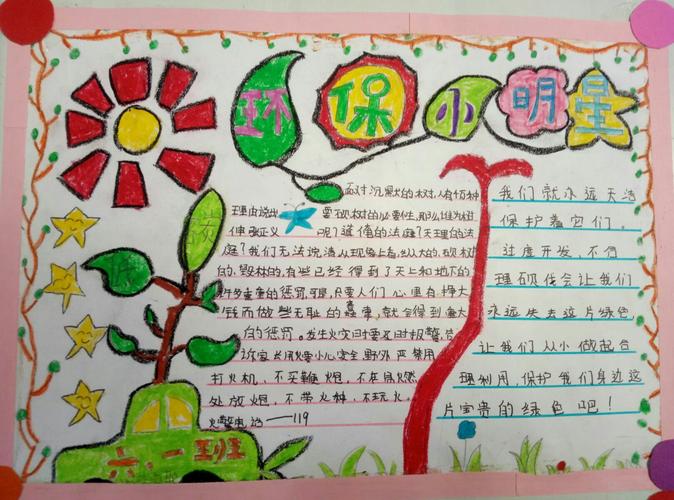 环保小明星
面对沉默的树,人有万种
理由说出 要砍树的必要性,那么谁为树
伸张正义 呢?道德的法庭?天理的法
庭?我们无法说清,从现象上看,从大的,砍树
的,毁林的,有些已经得到了天上和地下的
许多重重的惩罚.可是,只要人们心里有挣大
钱而做些无耻的蠢事,就会得到重大
的惩罚。发生火灾时要及时报警,告
诉家长用火要小心安全野外严禁用
打火机、不买鞭炮,不在易燃
处放炮,不带火种,不玩火。
火警电话——119
我们就永远无法
保护着它们。
过度开发,不合
理砍伐会让我们
永远失去这片绿色
让我们从小做起合
理利用,保护我们身边这
片宝贵的绿色吧!
低
碳
六.一班